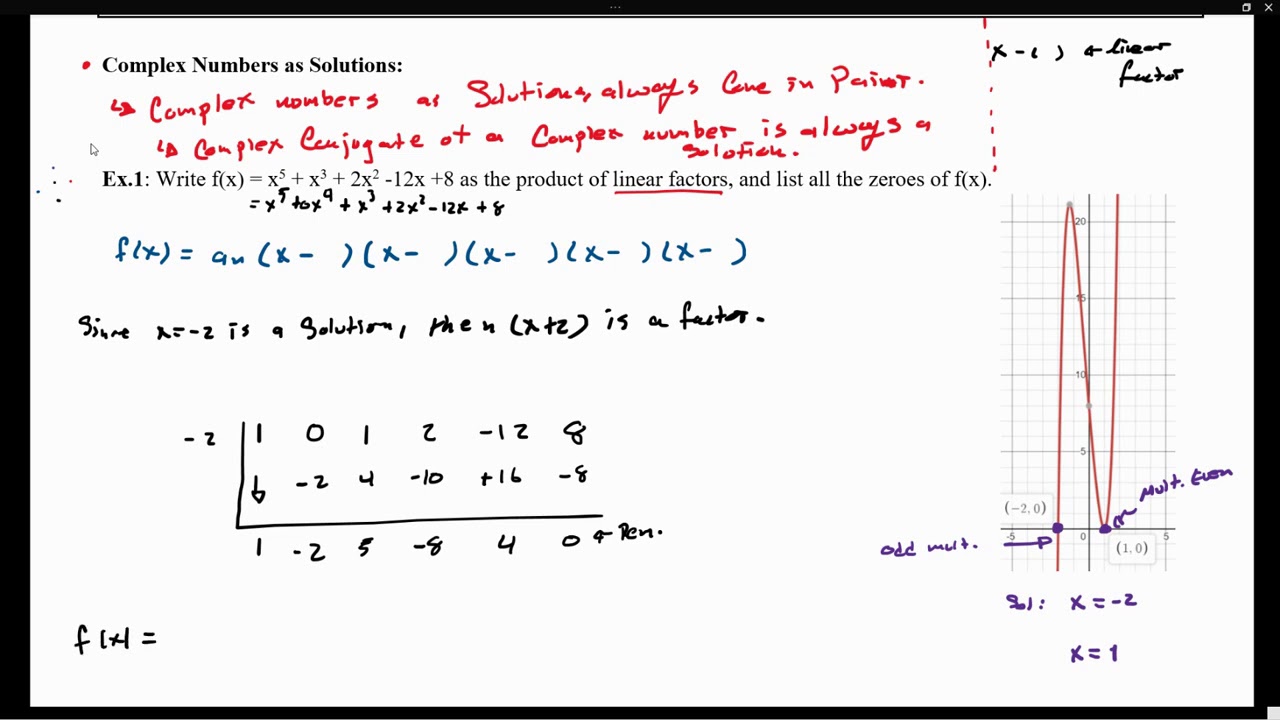 x - ( ) ← linear
factor
• Complex Numbers as Solutions:
↳ Complex numbers as Solutions, always Come in Pairs.
↳ Complex Conjugate of a Complex number is always a
solution.
Ex.1: Write f(x) = x⁵ + x³ + 2x² -12x +8 as the product of linear factors, and list all the zeroes of f(x).
= x⁵ + 0x⁴ + x³ + 2x² - 12x + 8
f(x) = an (x - )(x - )(x - )(x - )(x - )
Since x = -2 is a Solution, then (x+2) is a factor.
-2 | 1 0 1 2 -12 8
↓ -2 4 -10 +16 -8
1 -2 5 -8 4 0 ← Rem.
f(x) =
20
15
10
5
(-2, 0)
-5 0 5
(1, 0)
Mult. Even
odd mult.
Sol: x = -2
x = 1